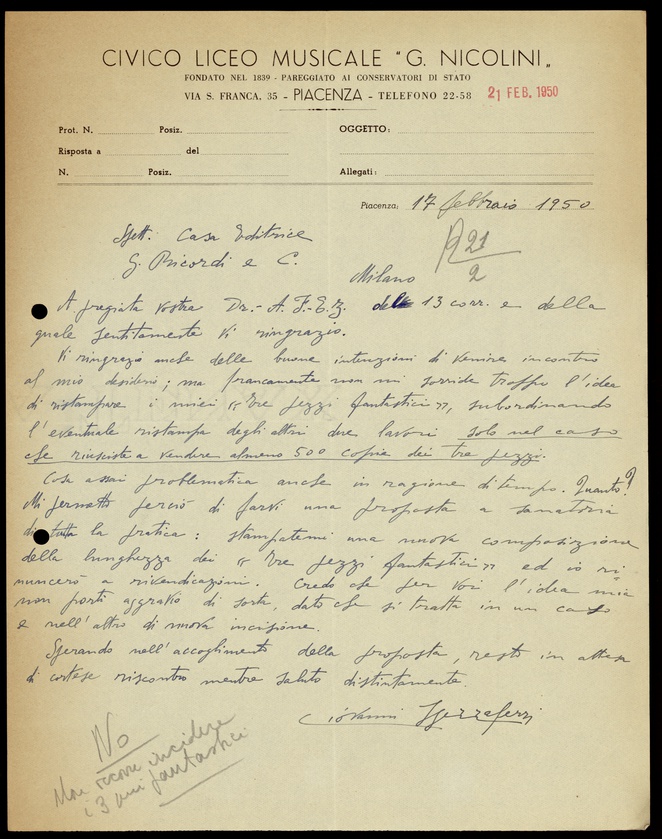 CIVICO LICEO MUSICALE "G. NICOLINI„
FONDATO NEL 1839 - PAREGGIATO AI CONSERVATORI DI STATO
VIA S. FRANCA, 35 - PIACENZA - TELEFONO 22-58
21 FEB. 1950
Prot. N. Posiz. OGGETTO:
Risposta a del
N. Posiz. Allegati:
Piacenza, 17 febbraio 1950
21
2
Spett. Casa Editrice
G. Ricordi e C.
Milano
A pregiata vostra Dr.- A.F.E.Z. del 13 corr. e della
quale sentitamente Vi ringrazio.
Vi ringrazio anche delle buone intenzioni di venire incontro
al mio desiderio; ma francamente non mi sorride troppo l'idea
di ristampare i miei "Tre pezzi fantastici", subordinando
l'eventuale ristampa degli altri due lavori solo nel caso
che riusciste a vendere almeno 500 copie dei tre pezzi.
Cosa assai problematica anche in ragione di tempo. Quanto?
Mi permetto perciò di farvi una proposta a sanatoria
di tutta la pratica: stampatemi una nuova composizione
della lunghezza dei "Tre pezzi fantastici" ed io ri-
nuncerò a rivendicazioni. Credo che per Voi l'idea mia
non porti aggravio di sorta, dato che si tratta in un caso
e nell'altro di nuova incisione.
Sperando nell'accoglimento della proposta, resto in attesa
di cortese riscontro mentre saluto distintamente.
Giovanni Spezzaferri
No
Non incidere
i 3 fantastici